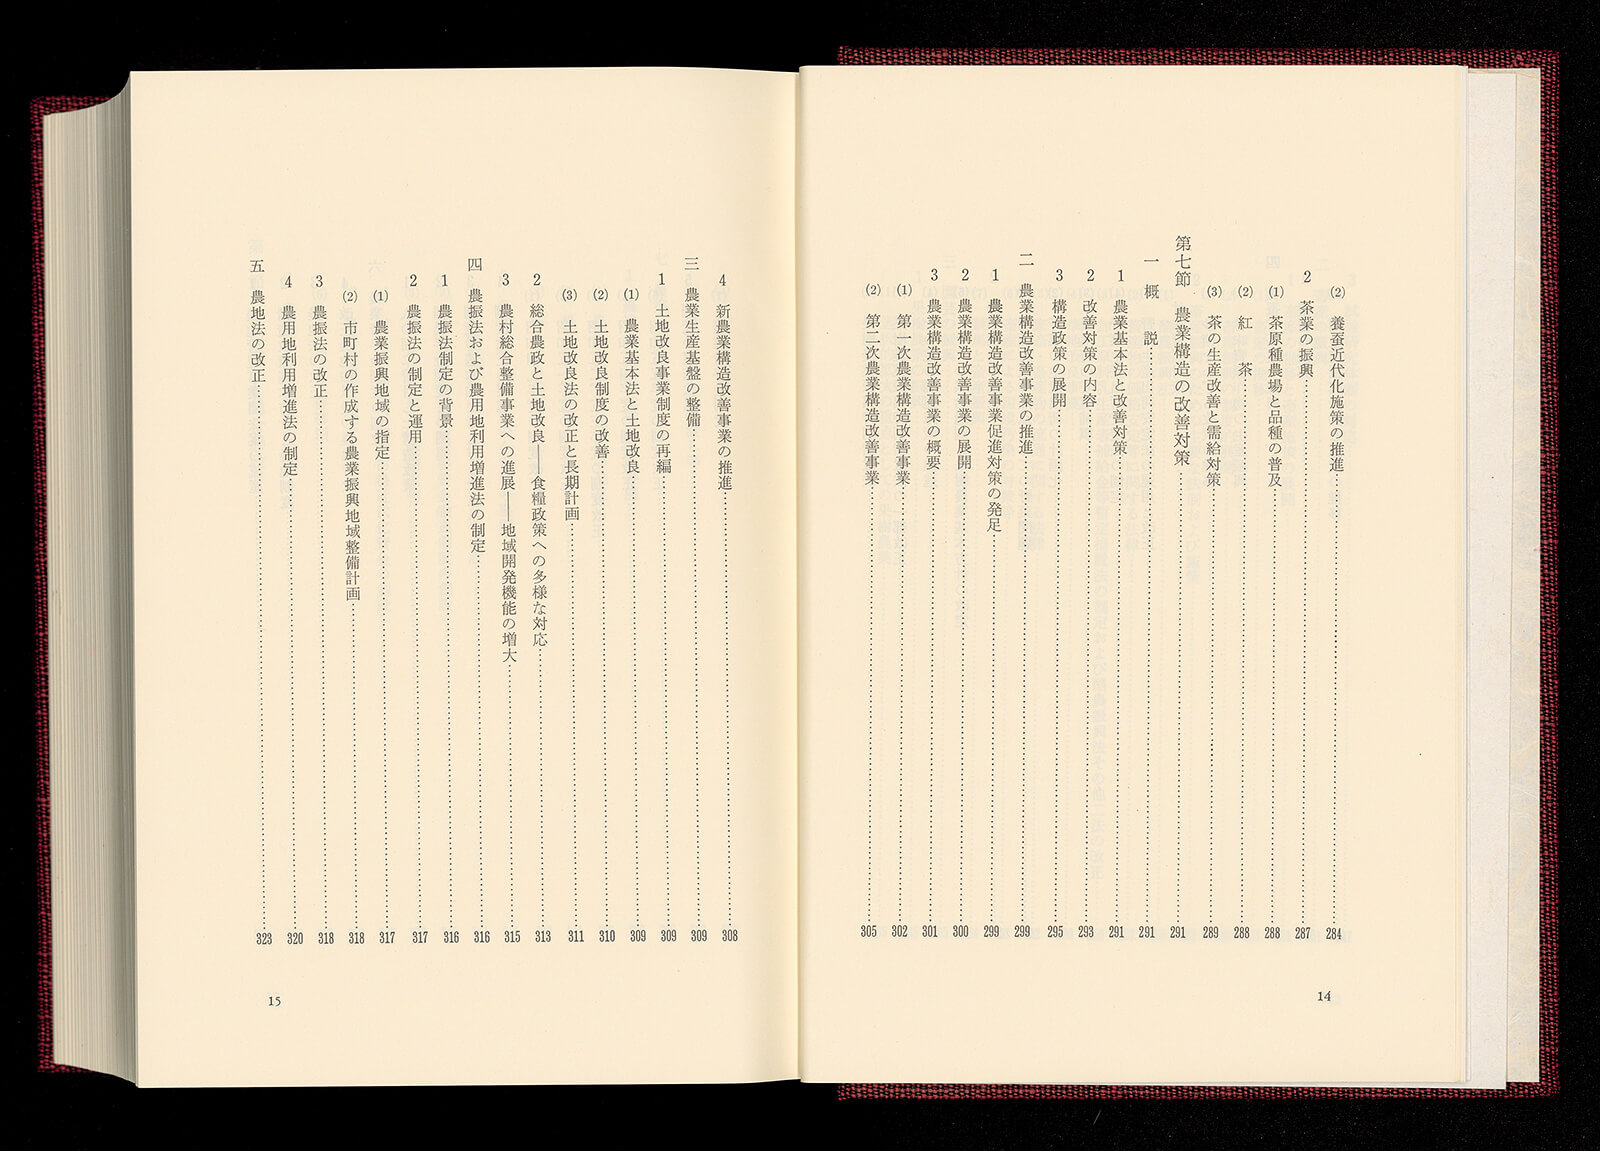 (2) 養蚕近代化施策の推進……284
2 茶業の振興……287
(1) 茶原種農場と品種の普及……288
(2) 紅　茶……288
(3) 茶の生産改善と需給対策……289
第七節 農業構造の改善対策……291
一 概　説……291
1 農業基本法と改善対策……291
2 改善対策の内容……293
3 構造政策の展開……295
二 農業構造改善事業の推進……299
1 農業構造改善事業促進対策の発足……299
2 農業構造改善事業の展開……300
3 農業構造改善事業の概要……301
(1) 第一次農業構造改善事業……302
(2) 第二次農業構造改善事業……305
14
4 新農業構造改善事業の推進……308
三 農業生産基盤の整備……309
1 土地改良事業制度の再編……309
(1) 農業基本法と土地改良……309
(2) 土地改良制度の改善……310
(3) 土地改良法の改正と長期計画……311
2 総合農政と土地改良——食糧政策への多様な対応……313
3 農村総合整備事業への進展——地域開発機能の増大……315
四 農振法および農用地利用増進法の制定……316
1 農振法制定の背景……316
2 農振法の制定と運用……317
(1) 農業振興地域の指定……317
(2) 市町村の作成する農業振興地域整備計画……318
3 農振法の改正……318
4 農用地利用増進法の制定……320
五 農地法の改正……323
15